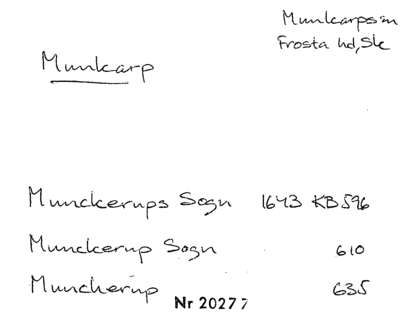 Munkarpssn
Frosta hd, Sk
Munkarp
Munckerups Sogn 1643 KB 596
Munckerup Sogn 610
Munckerup 635
Nr 20277